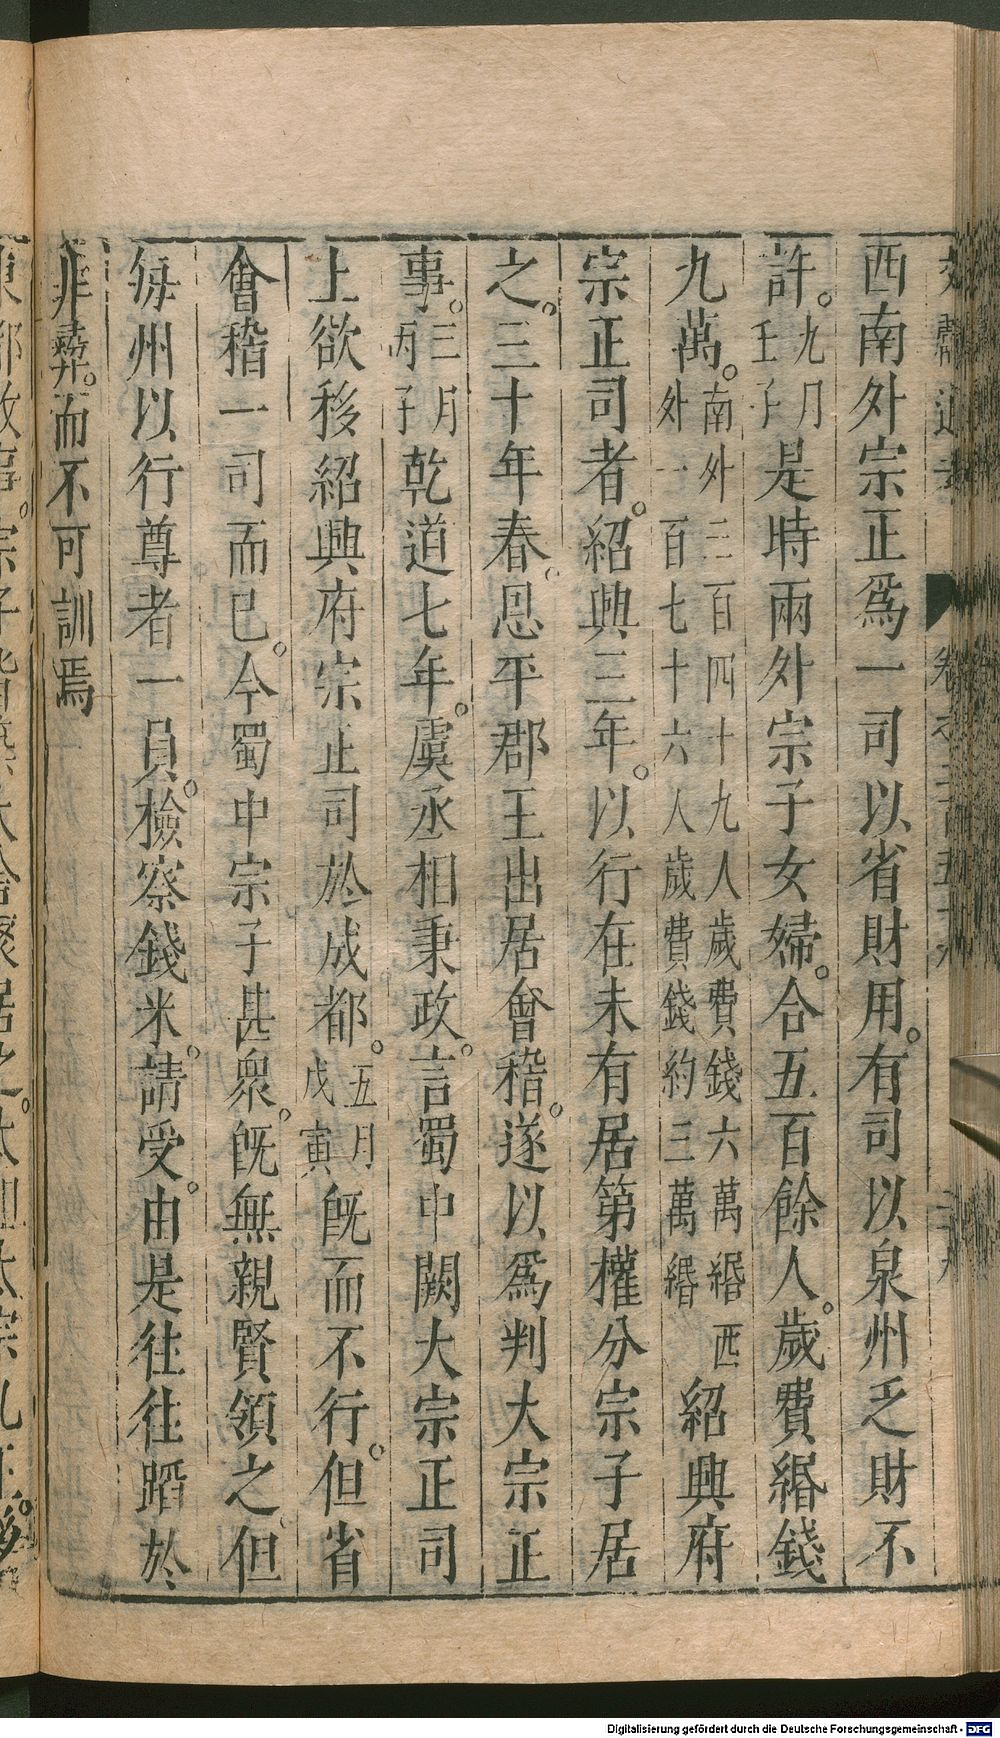 西南外宗正爲一司以省財用。有司以泉州乏財不
許。九月壬子是時兩外宗子女婦。合五百餘人。歲費緡錢
九萬。南外三百四十九人歲費錢六萬緡西外一百七十六人歲費錢約三萬緡紹興府
宗正司者。紹興三年。以行在未有居第權分宗子居
之。三十年春。恩平郡王出居會稽。遂以爲判大宗正
事。三月丙子乾道七年。虞丞相秉政。言蜀中闕大宗正司
上欲移紹興府宗止司於成都。五月戊寅旣而不行。但省
會稽一司而已。今蜀中宗子甚衆。旣無親賢領之。但
每州以行尊者一員。檢察錢米。請受。由是往往蹈於
非彝。而不可訓焉
Digitalisierung gefördert durch die Deutsche Forschungsgemeinschaft - DFG